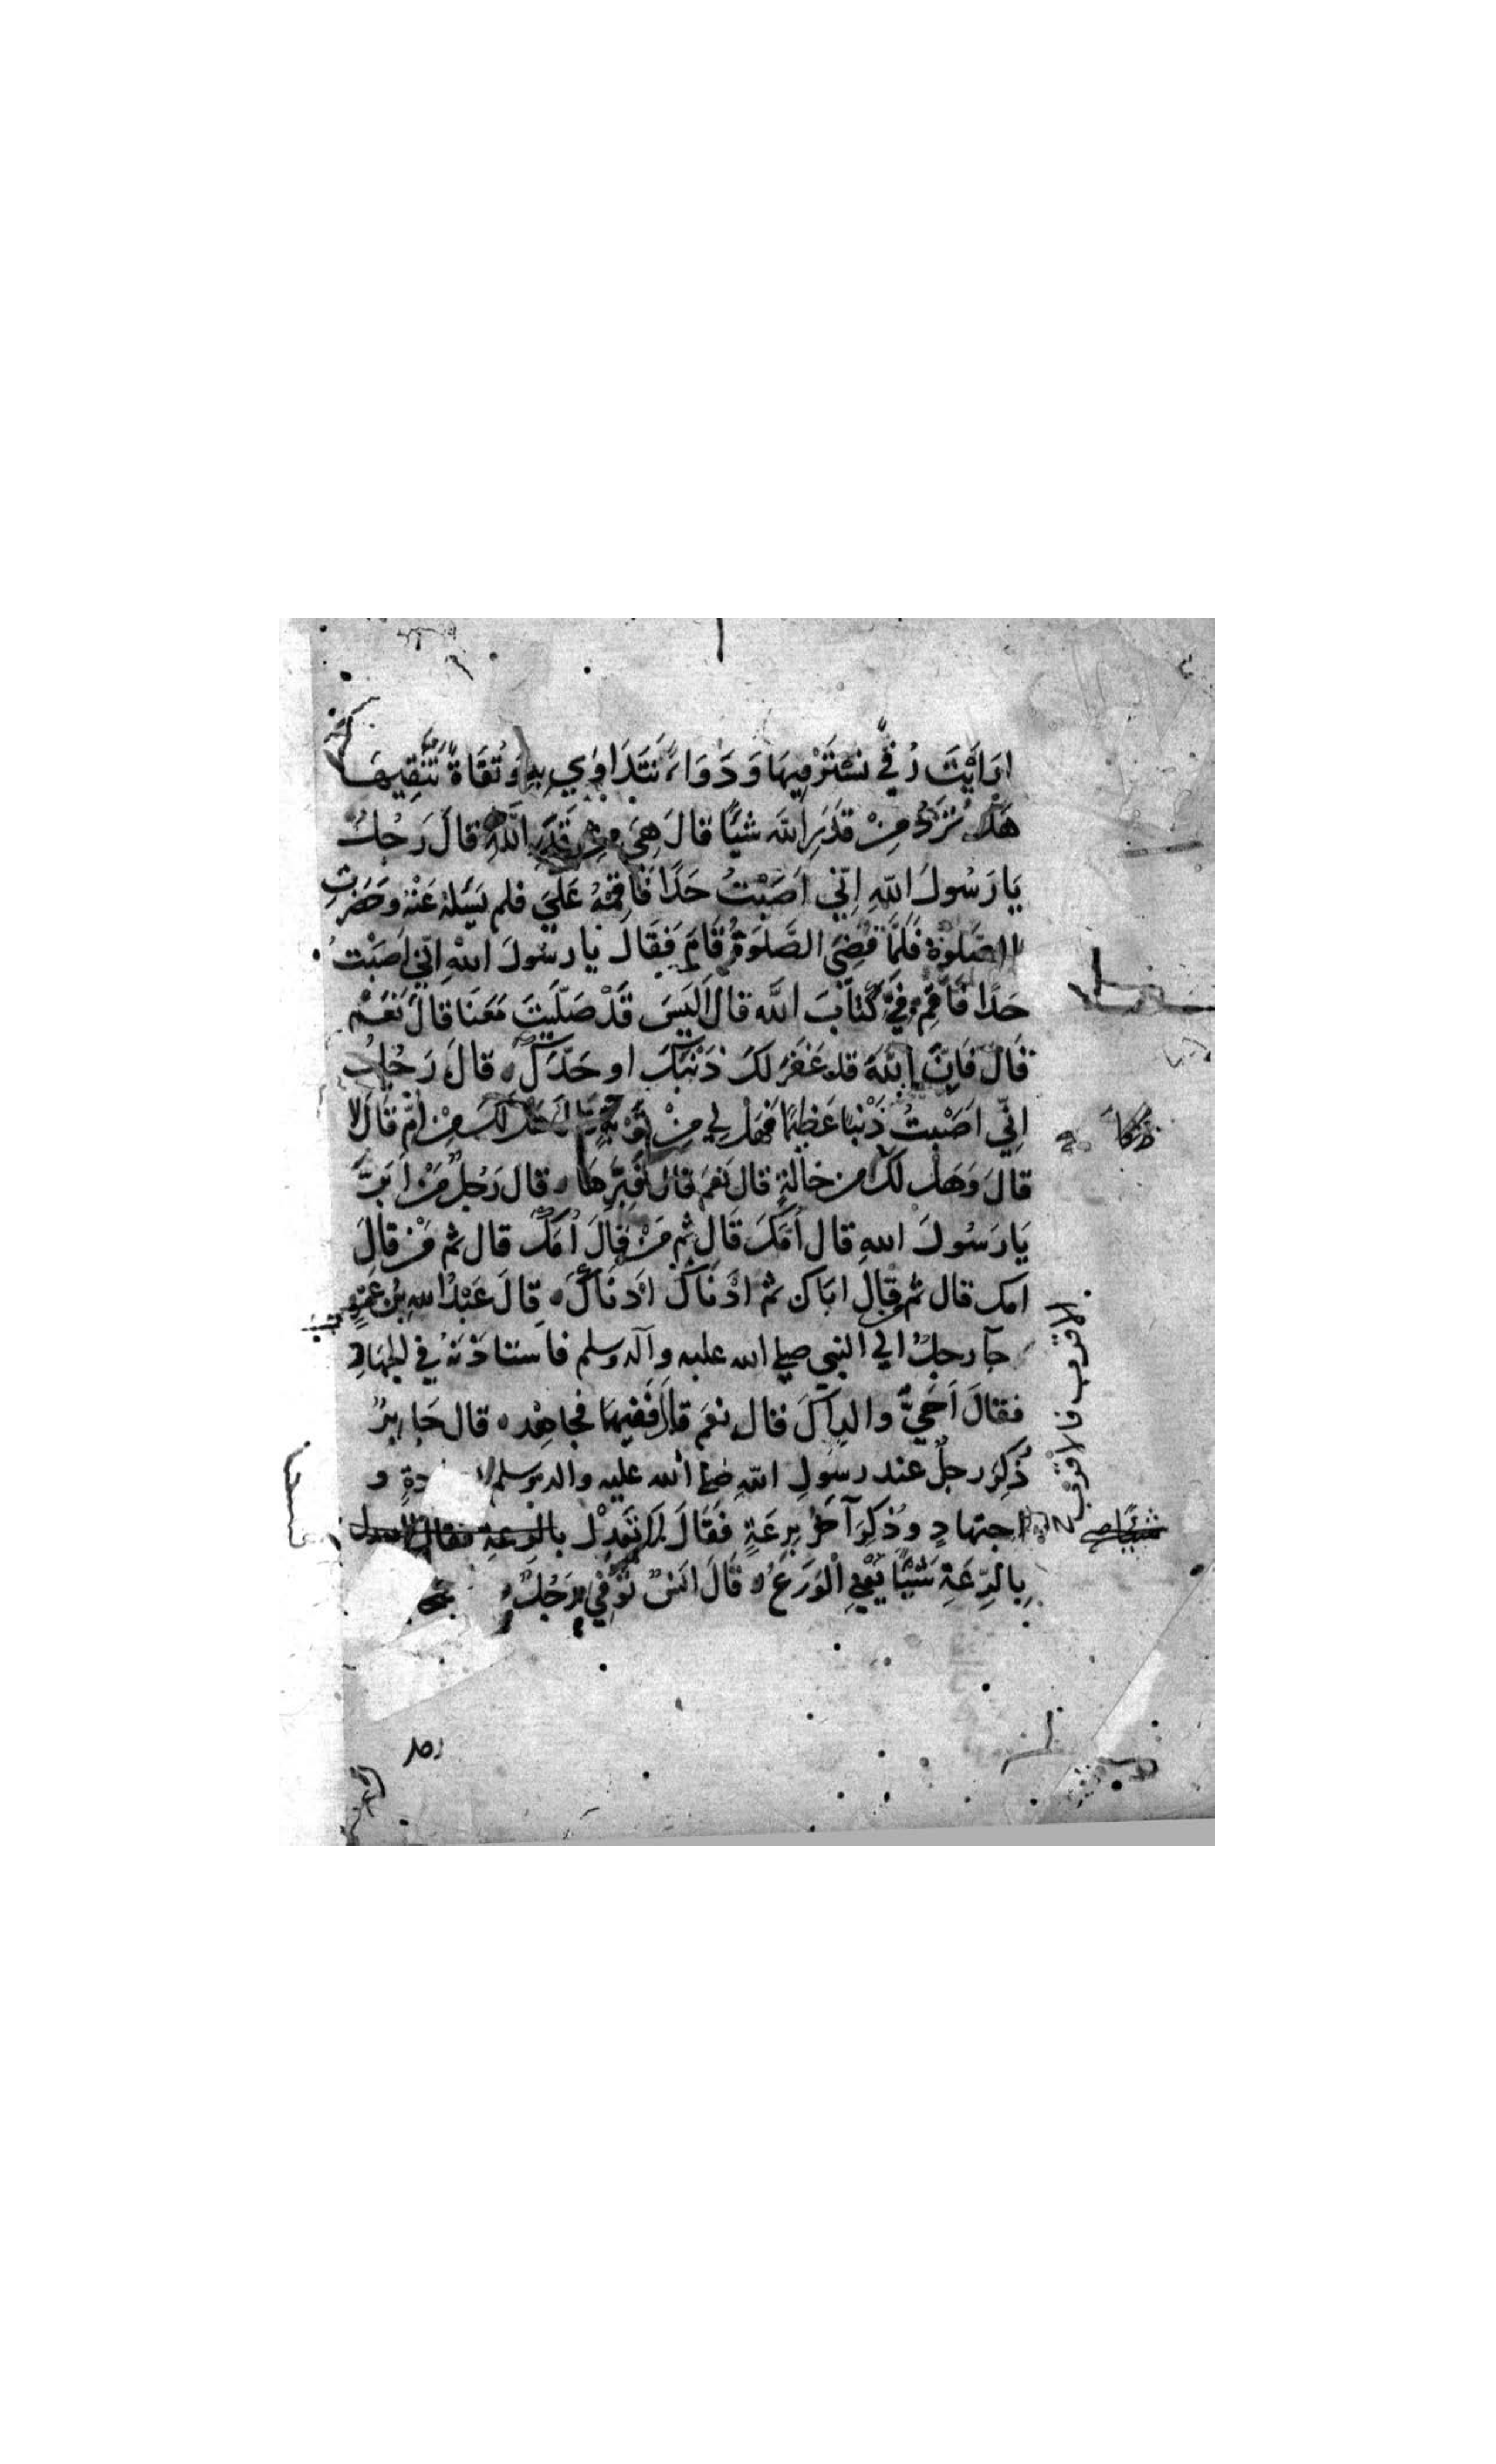 ارَايْتَ رُقيً نسْتَرْقِيهَا وَدَوَاءً نَتَدَاوَي بِهِ وَتُقَاةً نَتَّقِيهَا
هَلْ تَرُدُّ مِنْ قَدَرِ اللهِ شَيًا قالَ هِيَ مِنْ قَدَرِ اللّهِ قالَ رَجُلٌ
يَا رَسُولَ اللّهِ اِنّي اَصَبْتُ حَدًا فَاَقِمْهُ عَلَيَّ فلم يَسَئلهُ عَنْهُ وَحَضَرتِ
الصَّلوةُ فَلَمَّا قُضِيَ الصَّلوَةُ قَامَ فَقَالَ يا رسُولَ اللهِ انّي اَصَبْتُ
حَدًا فَاَقِمْ فِيَّ كِتَابَ اللَّه قالَ اَلَيسَ قَدْ صَلّيتَ مَعَنَا قالَ نَعَمْ
قَالَ فَاِنَّ اللّهَ قد غَفَرَ لكَ ذَنْبَكَ او حَدَّكَ ه قالَ رَجُلٌ
اِنّي اَصَبْتُ ذَنْبًا عَظِيمًا فَهَل لِي مِنْ تَوْبَةٍ قالَ هَل لكَ مِنْ اُمٍّ قَالَ لا
قالَ وَهَلْ لكَ من خالَةٍ قال نَعَمْ قالَ فَبِرَّهَا ه قال رَجُلٌ مَنْ اَبَرُّ
يَا رَسُولَ اللهِ قال اُمَّكَ قَالَ ثم مَنْ قالَ اُمَّكَ قال ثم مَنْ قالَ
امك قال ثم قال اباك ثم ادْنَاكَ اَدنَاكَ ه قالَ عَبْدُ اللهِ بْنُ عَمْرٍو
جآ رجلٌ الي النبي صلي الله عليه وآله وسلم فاستاذنهُ في الجهادِ
فقالَ اَحَيٌّ والداكَ قال نعم قالَ فَفيهمَا فجاهِد ه قال جَابِرٌ
ذُكِرَ رجلٌ عند رسُولِ اللّهِ صلي الله عليه واله وسلم و
اجتهادٍ وذُكِرَ آخَرُ بِرِعَةٍ فَقَالَ لا تَعْدِلْ بالرعةِ فقال
بِالرِّعَةِ شَيْئًا يَعْنِي الْوَرَعَ ه قَالَ انسٌ تُوُفِّيَ رَجُلٌ
الاقرب فالاقرب
شيًا